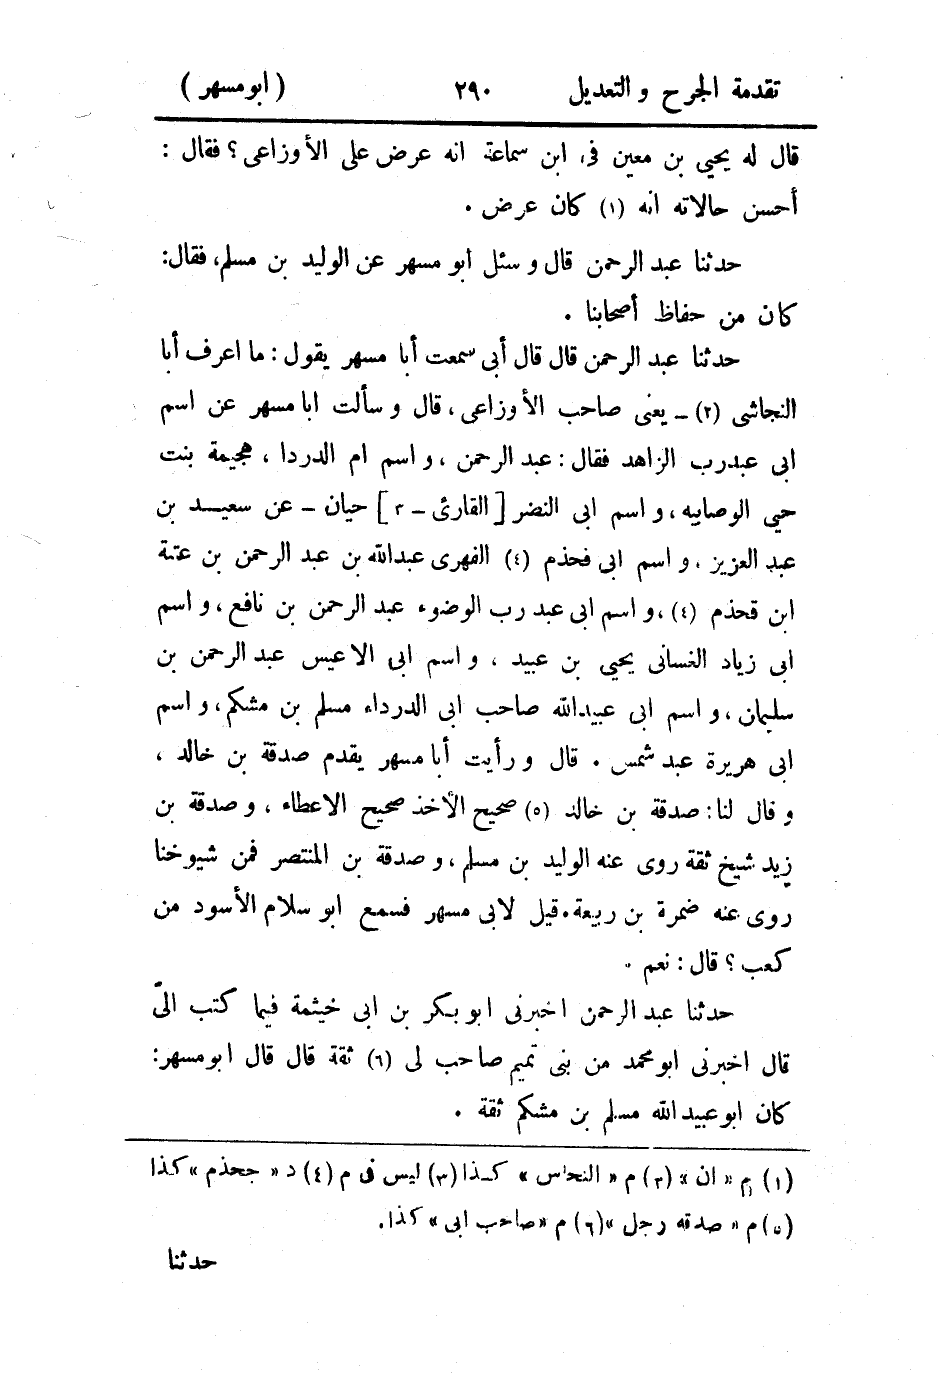 تقدمة الجرح و التعديل ٢٩٠ ( ابو مسهر )
قال له يحيى بن معين فى ابن سماعة انه عرض على الأوزاعى ؟ فقال :
أحسن حالاته انه (١) كان عرض .
حدثنا عبد الرحمن قال و سئل ابو مسهر عن الوليد بن مسلم، فقال:
كان من حفاظ أصحابنا .
حدثنا عبد الرحمن قال قال أبى سمعت أبا مسهر يقول : ما اعرف أبا
النجاشى (٢) ـ يعنى صاحب الأوزاعى ، قال و سألت ابا مسهر عن اسم
ابى عبدرب الزاهد فقال : عبد الرحمن ، و اسم ام الدردا ، هجيمة بنت
حيى الوصابيه ، و اسم ابى النضر [ القارئ ـ ٣ ] حيان ـ عن سعيد بن
عبد العزيز ، و اسم ابى فحذم (٤) الفهرى عبدالله بن عبد الرحمن بن عتبة
ابن قحذم (٤) ، و اسم ابى عبد رب الوضوء عبد الرحمن بن نافع ، و اسم
ابى زياد الغسانى يحيى بن عبيد ، و اسم ابى الاعيس عبد الرحمن بن
سليمان ، و اسم ابى عبيدالله صاحب ابى الدرداء مسلم بن مشكم ، و اسم
ابى هريرة عبد شمس . قال و رأيت أبا مسهر يقدم صدقة بن خالد ،
و قال لنا : صدقة بن خالد (٥) صحيح الأخذ صحيح الاعطاء ، و صدقة بن
زيد شيخ ثقة روى عنه الوليد بن مسلم ، و صدقة بن المنتصر فمن شيوخنا
روى عنه ضمرة بن ربيعة . قيل لابى مسهر فسمع ابو سلام الأسود من
كعب ؟ قال : نعم .
حدثنا عبد الرحمن اخبرنى ابو بكر بن ابى خيثمة فيما كتب الىّ
قال اخبرنى ابو محمد من بنى تميم صاحب لى (٦) ثقة قال قال ابو مسهر:
كان ابو عبيد الله مسلم بن مشكم ثقة .
(١) م « ان » (٢) م « النحاس » كذا (٣) ليس فى م (٤) د « جحذم » كذا
(٥) م « صدقه رجل » (٦) م « صاحب ابى » كذا .
حدثنا